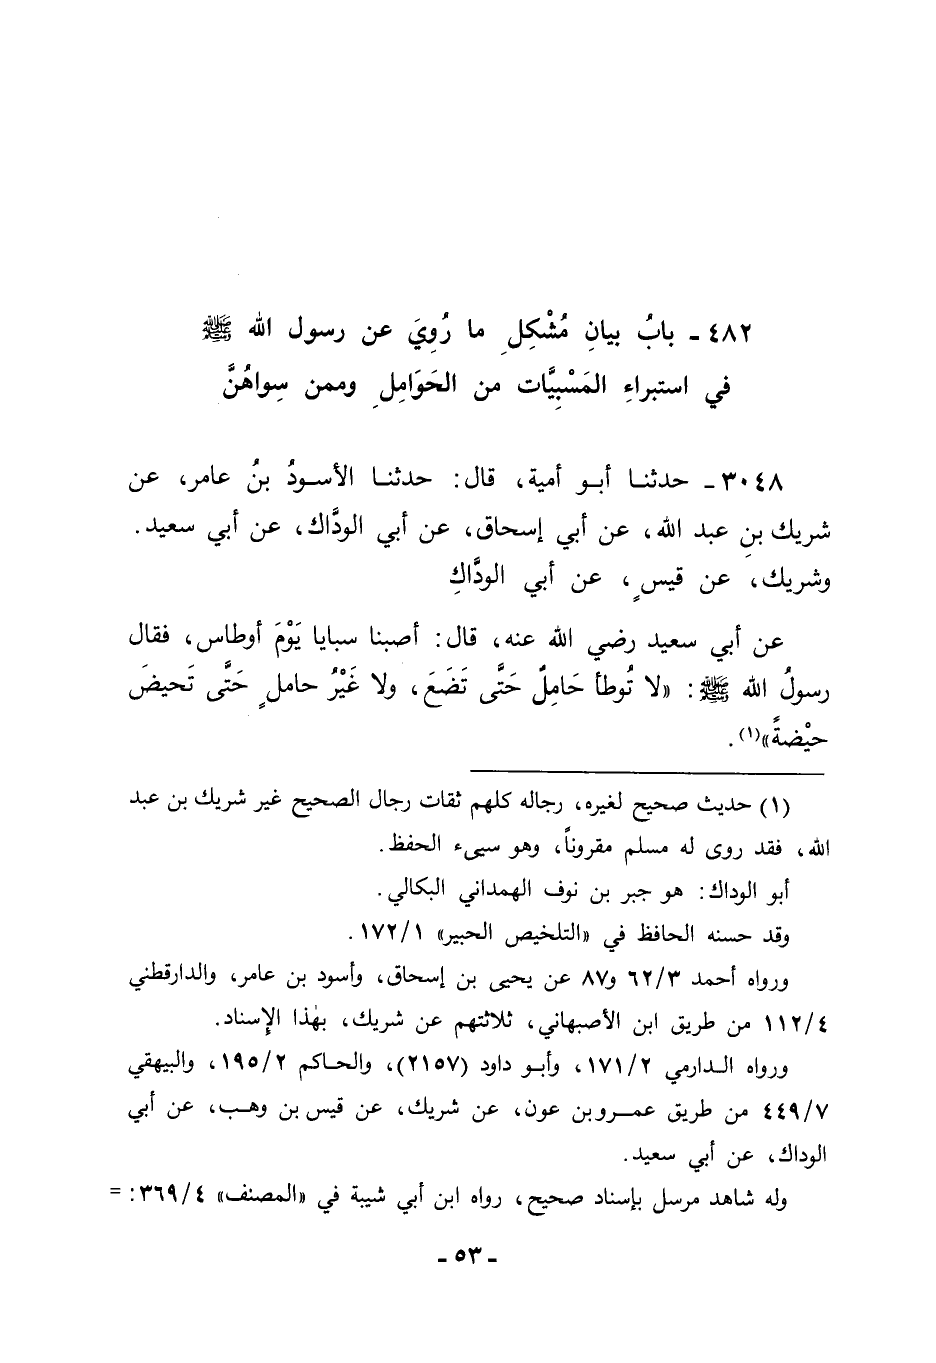 ٤٨٢ ـ بابُ بيانِ مُشْكِلِ ما رُوِيَ عن رسول الله ﷺ
في استبراءِ المَسْبِيَّات من الحَوَامِلِ وممن سِواهُنَّ
٣٠٤٨ ـ حدثنا أبو أمية، قال: حدثنا الأسودُ بنُ عامر، عن
شريك بنِ عبد الله، عن أبي إسحاق، عن أبي الودَّاك، عن أبي سعيد.
وشريك، عن قيسٍ، عن أبي الودَّاكِ
عن أبي سعيد رضي الله عنه، قال: أصبنا سبايا يَوْمَ أوطاس، فقال
رسولُ الله ﷺ: «لا تُوطأ حَامِلٌ حَتَّى تَضَعَ، ولا غَيْرُ حاملٍ حَتَّى تَحيضَ
حيْضةً»(١).
(١) حديث صحيح لغيره، رجاله كلهم ثقات رجال الصحيح غير شريك بن عبد
الله، فقد روى له مسلم مقروناً، وهو سيىء الحفظ.
أبو الوداك: هو جبر بن نوف الهمداني البكالي.
وقد حسنه الحافظ في «التلخيص الحبير» ١٧٢/١.
ورواه أحمد ٦٢/٣ و٨٧ عن يحيى بن إسحاق، وأسود بن عامر، والدارقطني
١١٢/٤ من طريق ابن الأصبهاني، ثلاثتهم عن شريك، بهٰذا الإسناد.
ورواه الدارمي ١٧١/٢، وأبو داود (٢١٥٧)، والحاكم ١٩٥/٢، والبيهقي
٤٤٩/٧ من طريق عمرو بن عون، عن شريك، عن قيس بن وهب، عن أبي
الوداك، عن أبي سعيد.
وله شاهد مرسل بإسناد صحيح، رواه ابن أبي شيبة في «المصنف» ٣٦٩/٤: =
ـ ٥٣ ـ